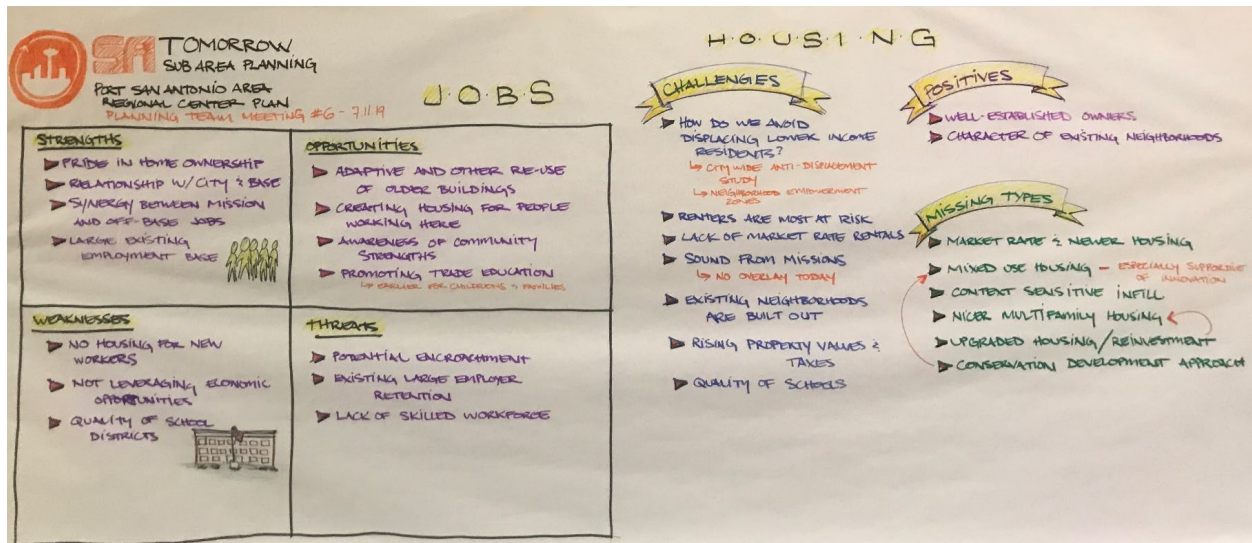 SA TOMORROW
SUB AREA PLANNING
PORT SAN ANTONIO AREA
REGIONAL CENTER PLAN
PLANNING TEAM MEETING #6 - 7.11.19
J·O·B·S
STRENGTHS
PRIDE IN HOME OWNERSHIP
RELATIONSHIP W/ CITY & BASE
SYNERGY BETWEEN MISSION
AND OFF-BASE JOBS
LARGE EXISTING
EMPLOYMENT BASE
OPPORTUNITIES
ADAPTIVE AND OTHER RE-USE
OF OLDER BUILDINGS
CREATING HOUSING FOR PEOPLE
WORKING HERE
AWARENESS OF COMMUNITY
STRENGTHS
PROMOTING TRADE EDUCATION
↳ EARLIER FOR CHILDRENS & FAMILIES
WEAKNESSES
NO HOUSING FOR NEW
WORKERS
NOT LEVERAGING ECONOMIC
OPPORTUNITIES
QUALITY OF SCHOOL
DISTRICTS
THREATS
POTENTIAL ENCROACHMENT
EXISTING LARGE EMPLOYER
RETENTION
LACK OF SKILLED WORKFORCE
H·O·U·S·I·N·G
CHALLENGES
HOW DO WE AVOID
DISPLACING LOWER INCOME
RESIDENTS?
↳ CITY WIDE ANTI-DISPLACEMENT
STUDY
↳ NEIGHBORHOOD EMPOWERMENT
ZONES
RENTERS ARE MOST AT RISK
LACK OF MARKET RATE RENTALS
SOUND FROM MISSIONS
↳ NO OVERLAY TODAY
EXISTING NEIGHBORHOODS
ARE BUILT OUT
RISING PROPERTY VALUES &
TAXES
QUALITY OF SCHOOLS
POSITIVES
WELL-ESTABLISHED OWNERS
CHARACTER OF EXISTING NEIGHBORHOODS
MISSING TYPES
MARKET RATE & NEWER HOUSING
MIXED USE HOUSING - ESPECIALLY SUPPORTIVE
OF INNOVATION
CONTEXT SENSITIVE INFILL
NICER MULTIFAMILY HOUSING
UPGRADED HOUSING/REINVESTMENT
CONSERVATION DEVELOPMENT APPROACH